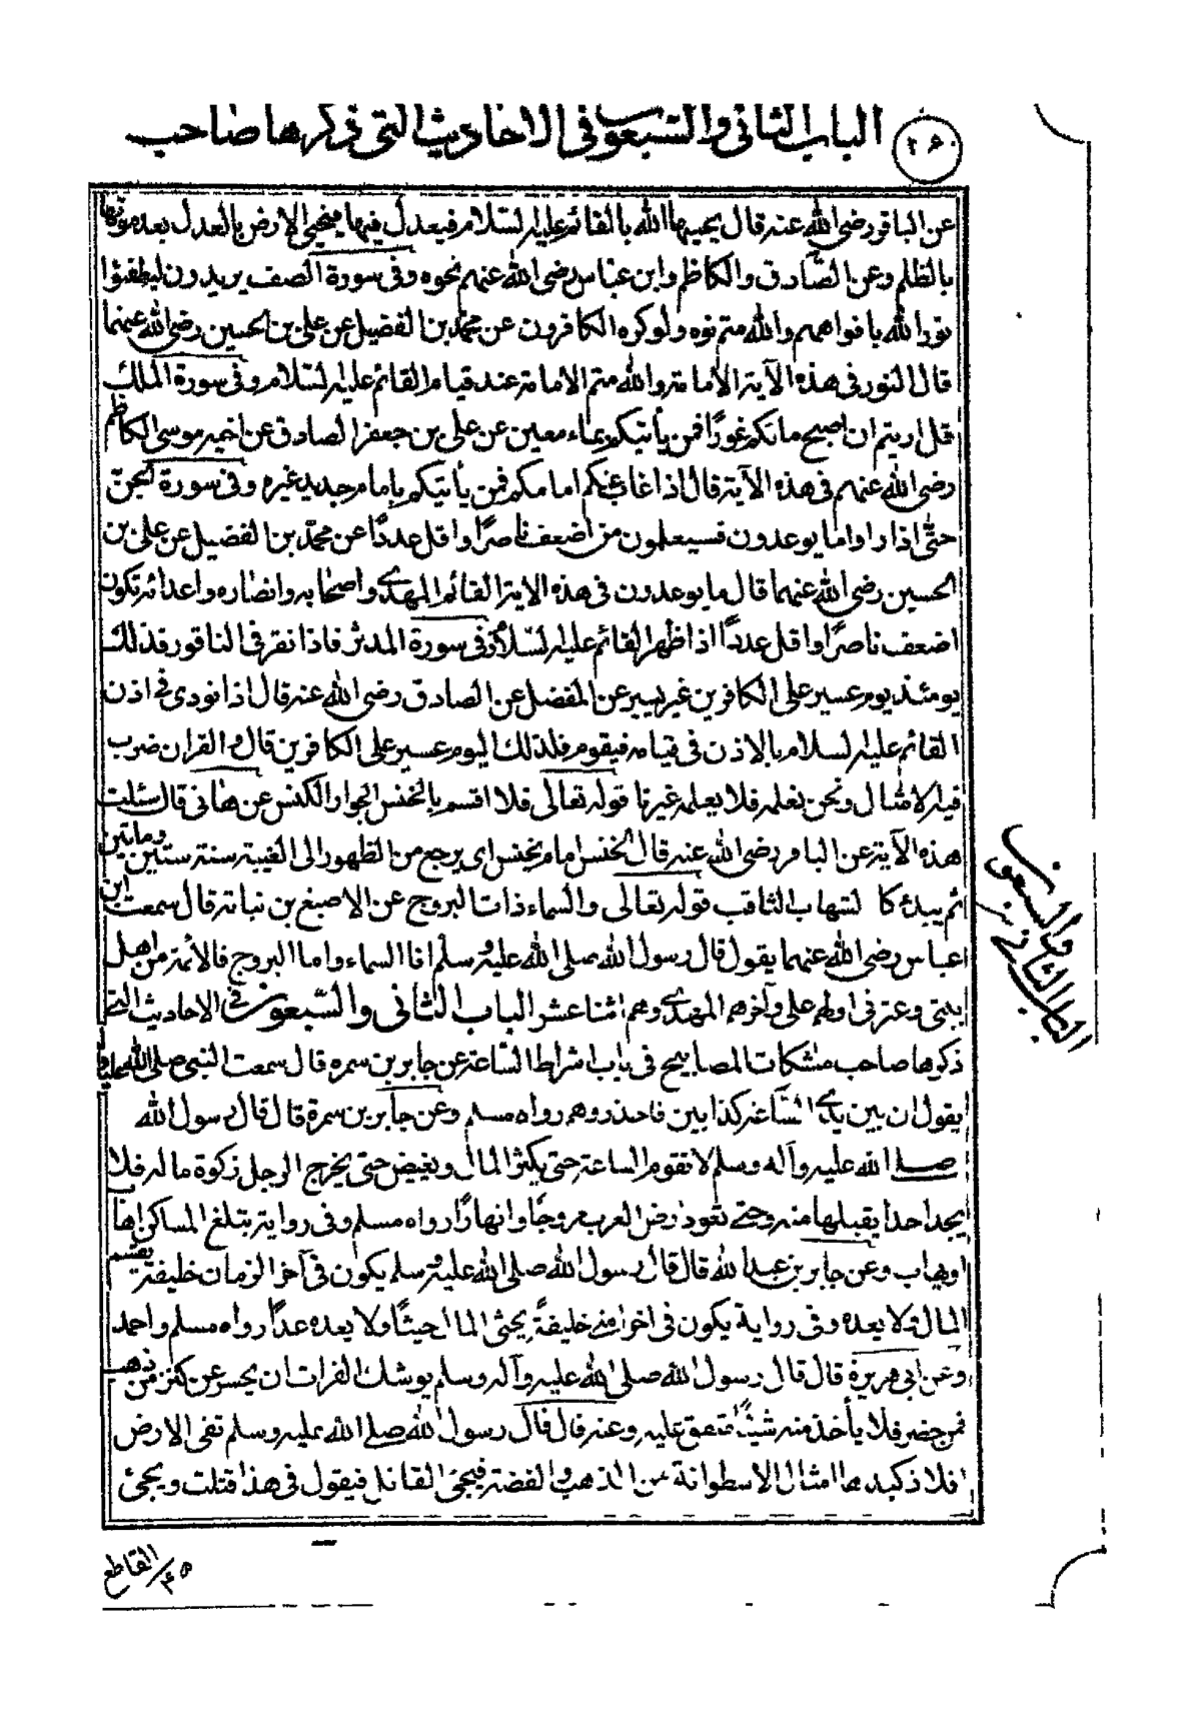 الباب الثانى والسبعون فى الاحاديث التى ذكرها صاحب
٢٦٠
عن الباقر رضى الله عنه قال يحييها الله بالقائم عليه السلام فيعدل فيها فيحيى الارض بالعدل بعد موتها
بالظلم وعن الصادق والكاظم وابن عباس رضى الله عنهم نحوه وفى سورة الصف يريدون ليطفئوا
نور الله بافواههم والله متم نوره ولو كره الكافرون عن محمد بن الفضيل عن على بن الحسين رضى الله عنهما
قال النور فى هذه الآية الامامة والله متم الامامة عند قيام القائم عليه السلام وفى سورة الملك
قل اريتم ان اصبح مائكم غورا فمن يأتيكم بماء معين عن على بن جعفر الصادق عن اخيه موسى الكاظم
رضى الله عنهم فى هذه الآية قال اذا غاب عنكم امامكم فمن يأتيكم بامام جديد غيره وفى سورة الجن
حتى اذا راوا ما يوعدون فسيعلمون من اضعف ناصرا واقل عددا عن محمد بن الفضيل عن على بن
الحسين رضى الله عنهما قال ما يوعدون فى هذه الاية القائم المهدى واصحابه وانصاره واعدائه تكون
اضعف ناصرا واقل عددا اذا ظهر القائم عليه السلام وفى سورة المدثر فاذا نقر فى الناقور فذلك
يومئذ يوم عسير على الكافرين غير يسير عن المفضل عن الصادق رضى الله عنه قال اذا نودى فى اذن
القائم عليه السلام بالاذن فى قيامه فيقوم فلذلك اليوم عسير على الكافرين قال والقران ضرب
فيه الامثال ونحن نعلمه فلا يعلمه غيرنا قوله تعالى فلا اقسم بالخنس الجوار الكنس عن هانى قال سئلت
هذه الآية عن الباقر رضى الله عنه قال الخنس امام يخنس اى يرجع من الظهور الى الغيبة سنة ستين ومأتين
ثم يبدء كالشهاب الثاقب قوله تعالى والسماء ذات البروج عن الاصبغ بن نباتة قال سمعت ابن
عباس رضى الله عنهما يقول قال رسول الله صلى الله عليه وسلم انا السماء واما البروج فالأئمة من اهل
بيتى وعترتى اولهم على وآخرهم المهدى وهم اثنا عشر الباب الثانى والسبعون فى الاحاديث التى
ذكرها صاحب مشكات المصابيح فى باب اشراط الساعة عن جابر بن سمره قال سمعت النبى صلى الله عليه
يقول ان بين يدى الساعة كذابين فاحذروهم رواه مسلم وعن جابر بن سمرة قال قال رسول الله
صلى الله عليه وآله وسلم لا تقوم الساعة حتى يكثر المال ويفيض حتى يخرج الرجل زكوة ماله فلا
يجد احدا يقبلها منه وحتى تعود ارض العرب مروجا وانهارا رواه مسلم وفى رواية تبلغ المساكن اهاب
او يهاب وعن جابر بن عبد الله قال قال رسول الله صلى الله عليه وسلم يكون فى آخر الزمان خليفة يقسم
المال ولا يعده وفى رواية يكون فى اخر امتى خليفة يحثى المال حيثا ولا يعده عدا رواه مسلم واحمد
وعن ابى هريرة قال قال رسول الله صلى الله عليه وآله وسلم يوشك الفرات ان يحسر عن كنز من ذهب
فمن حضر فلا يأخذ منه شيئا متفق عليه وعنه قال قال رسول الله صلى الله عليه وسلم تقى الارض
افلاذ كبدها امثال الاسطوانة من الذهب والفضة فيجئ القاتل فيقول فى هذا قتلت ويجئ
الباب الثانى والسبعون
القاطع